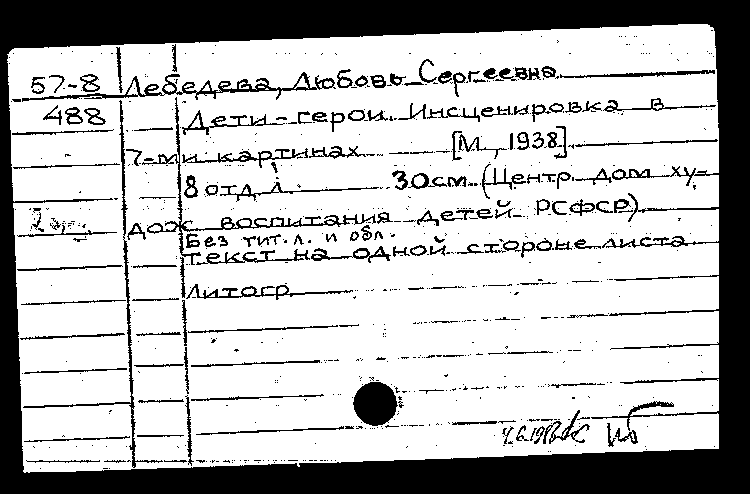 57-8 Лебедева, Любовь Сергеевна
488 Дети-герои. Инсценировка в
7-ми картинах [М., 1938].
8 отд. л. 30 см. (Центр. дом ху-
дож. воспитания детей РСФСР).
Без тит. л. и обл.
Текст на одной стороне листа
Литогр.